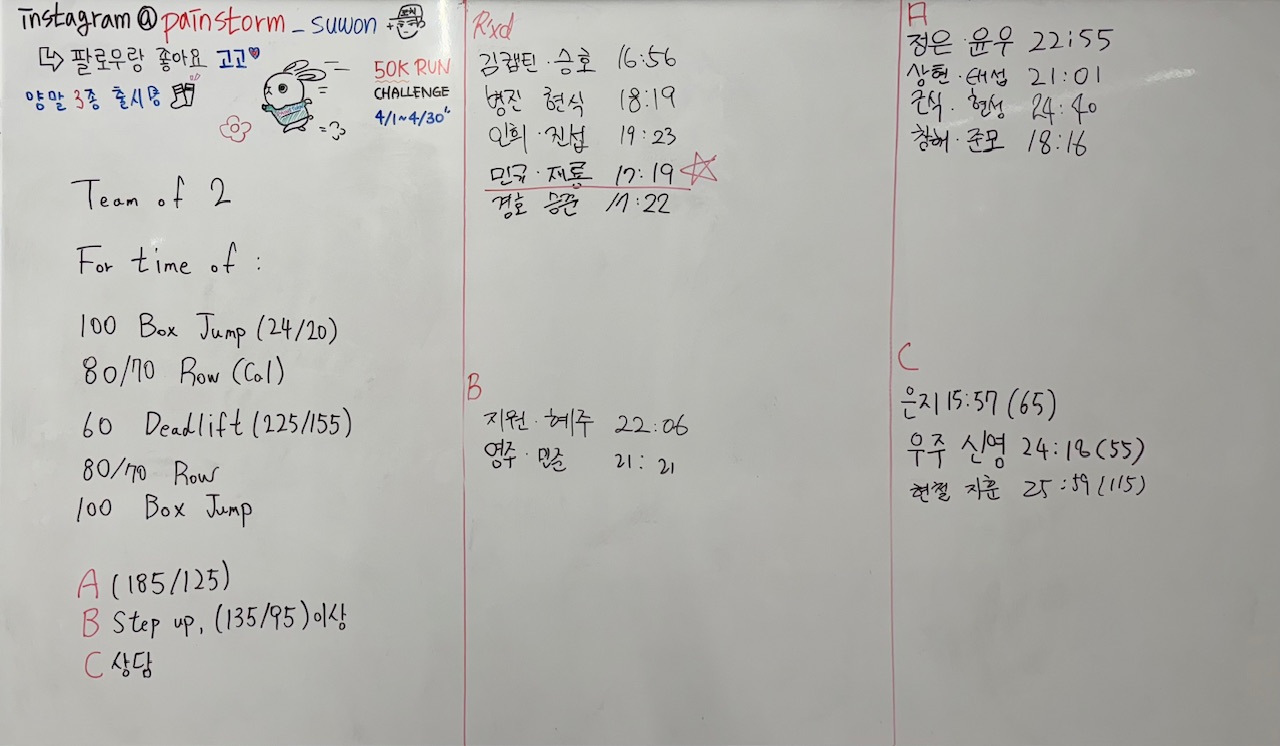 instagram@painstorm_suwon
팔로우랑 좋아요 고고
양말 3종 출시중
50K RUN
CHALLENGE
4/1~4/30
Team of 2
For time of :
100 Box Jump (24/20)
80/70 Row (Cal)
60 Deadlift (225/155)
80/70 Row
100 Box Jump
A (185/125)
B Step up, (135/95)이상
C 상담
Rxd
김캡틴·승호 16:56
병진 현식 18:19
인희·진섭 19:23
민규·재룡 17:19
경호 승준 17:22
B
지원·혜주 22:06
영주·민준 21:21
A
정은·윤우 22:55
상현·태섭 21:01
근식·현성 24:40
창해·준모 18:16
C
은지 15:57 (65)
우주 신영 24:18 (55)
현철 지훈 25:59 (115)